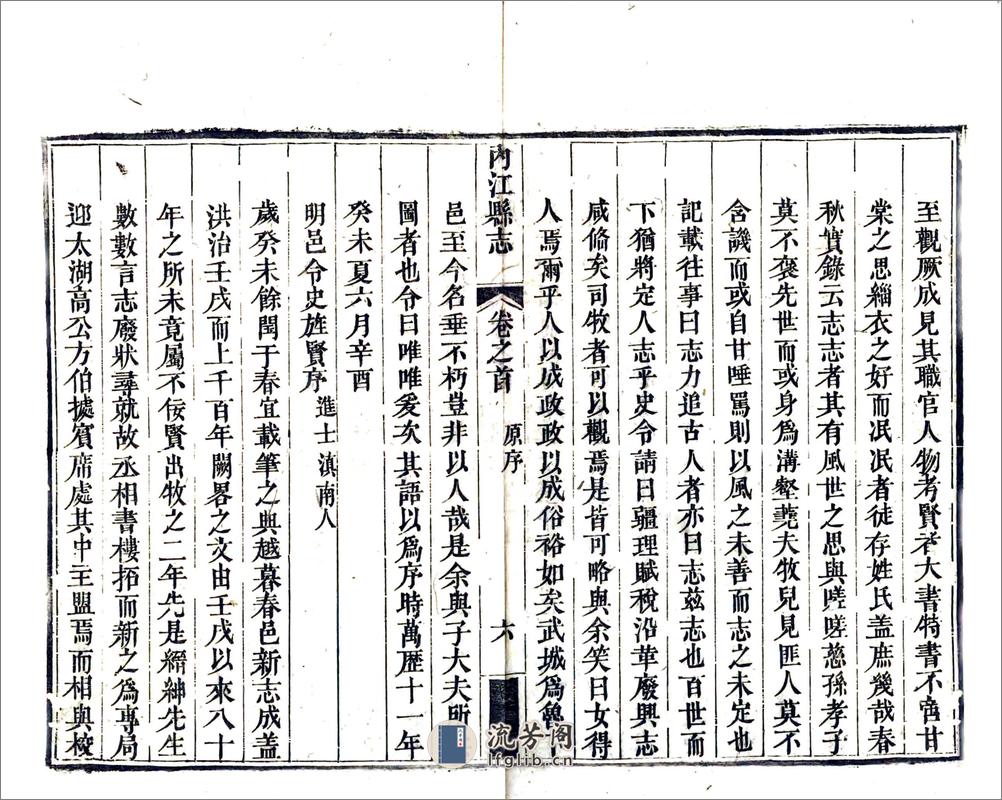 至觀厥成見其職官人物考賢者大書特書不啻甘
棠之思緇衣之好而冺冺者徒存姓氏盖庶幾哉春
秋實錄云志志者其有風世之思與嗟嗟慈孫孝子
莫不褒先世而或身爲溝壑蕘夫牧兒見匪人莫不
含譏而或自甘唾罵則以風之未善而志之未定也
記載往事曰志力追古人者亦曰志兹志也百世而
下猶將定人志乎史令請曰疆理賦稅沿革廢興志
咸脩矣司牧者可以觀焉是皆可略與余笑曰女得
人焉爾乎人以成政政以成俗裕如矣武城爲魯
邑至今名垂不朽豈非以人哉是余與子大夫所
圖者也令曰唯唯爰次其語以爲序時萬歷十一年
癸未夏六月辛酉
明邑令史旌賢序 進士滇南人
歲癸未餘閏于春宜載筆之典越暮春邑新志成蓋
洪治壬戌而上千百年闕畧之文由壬戌以來八十
年之所未竟屬不佞賢出牧之二年先是縉紳先生
數數言志廢狀尋就故丞相書樓拓而新之爲專局
迎太湖高公方伯據賓席處其中主盟焉而相與校
內江縣志 卷之首 原序 六
流芳阁
lfglib.cn